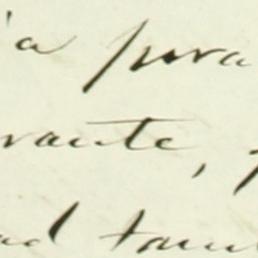 a para
rante,
ad tam